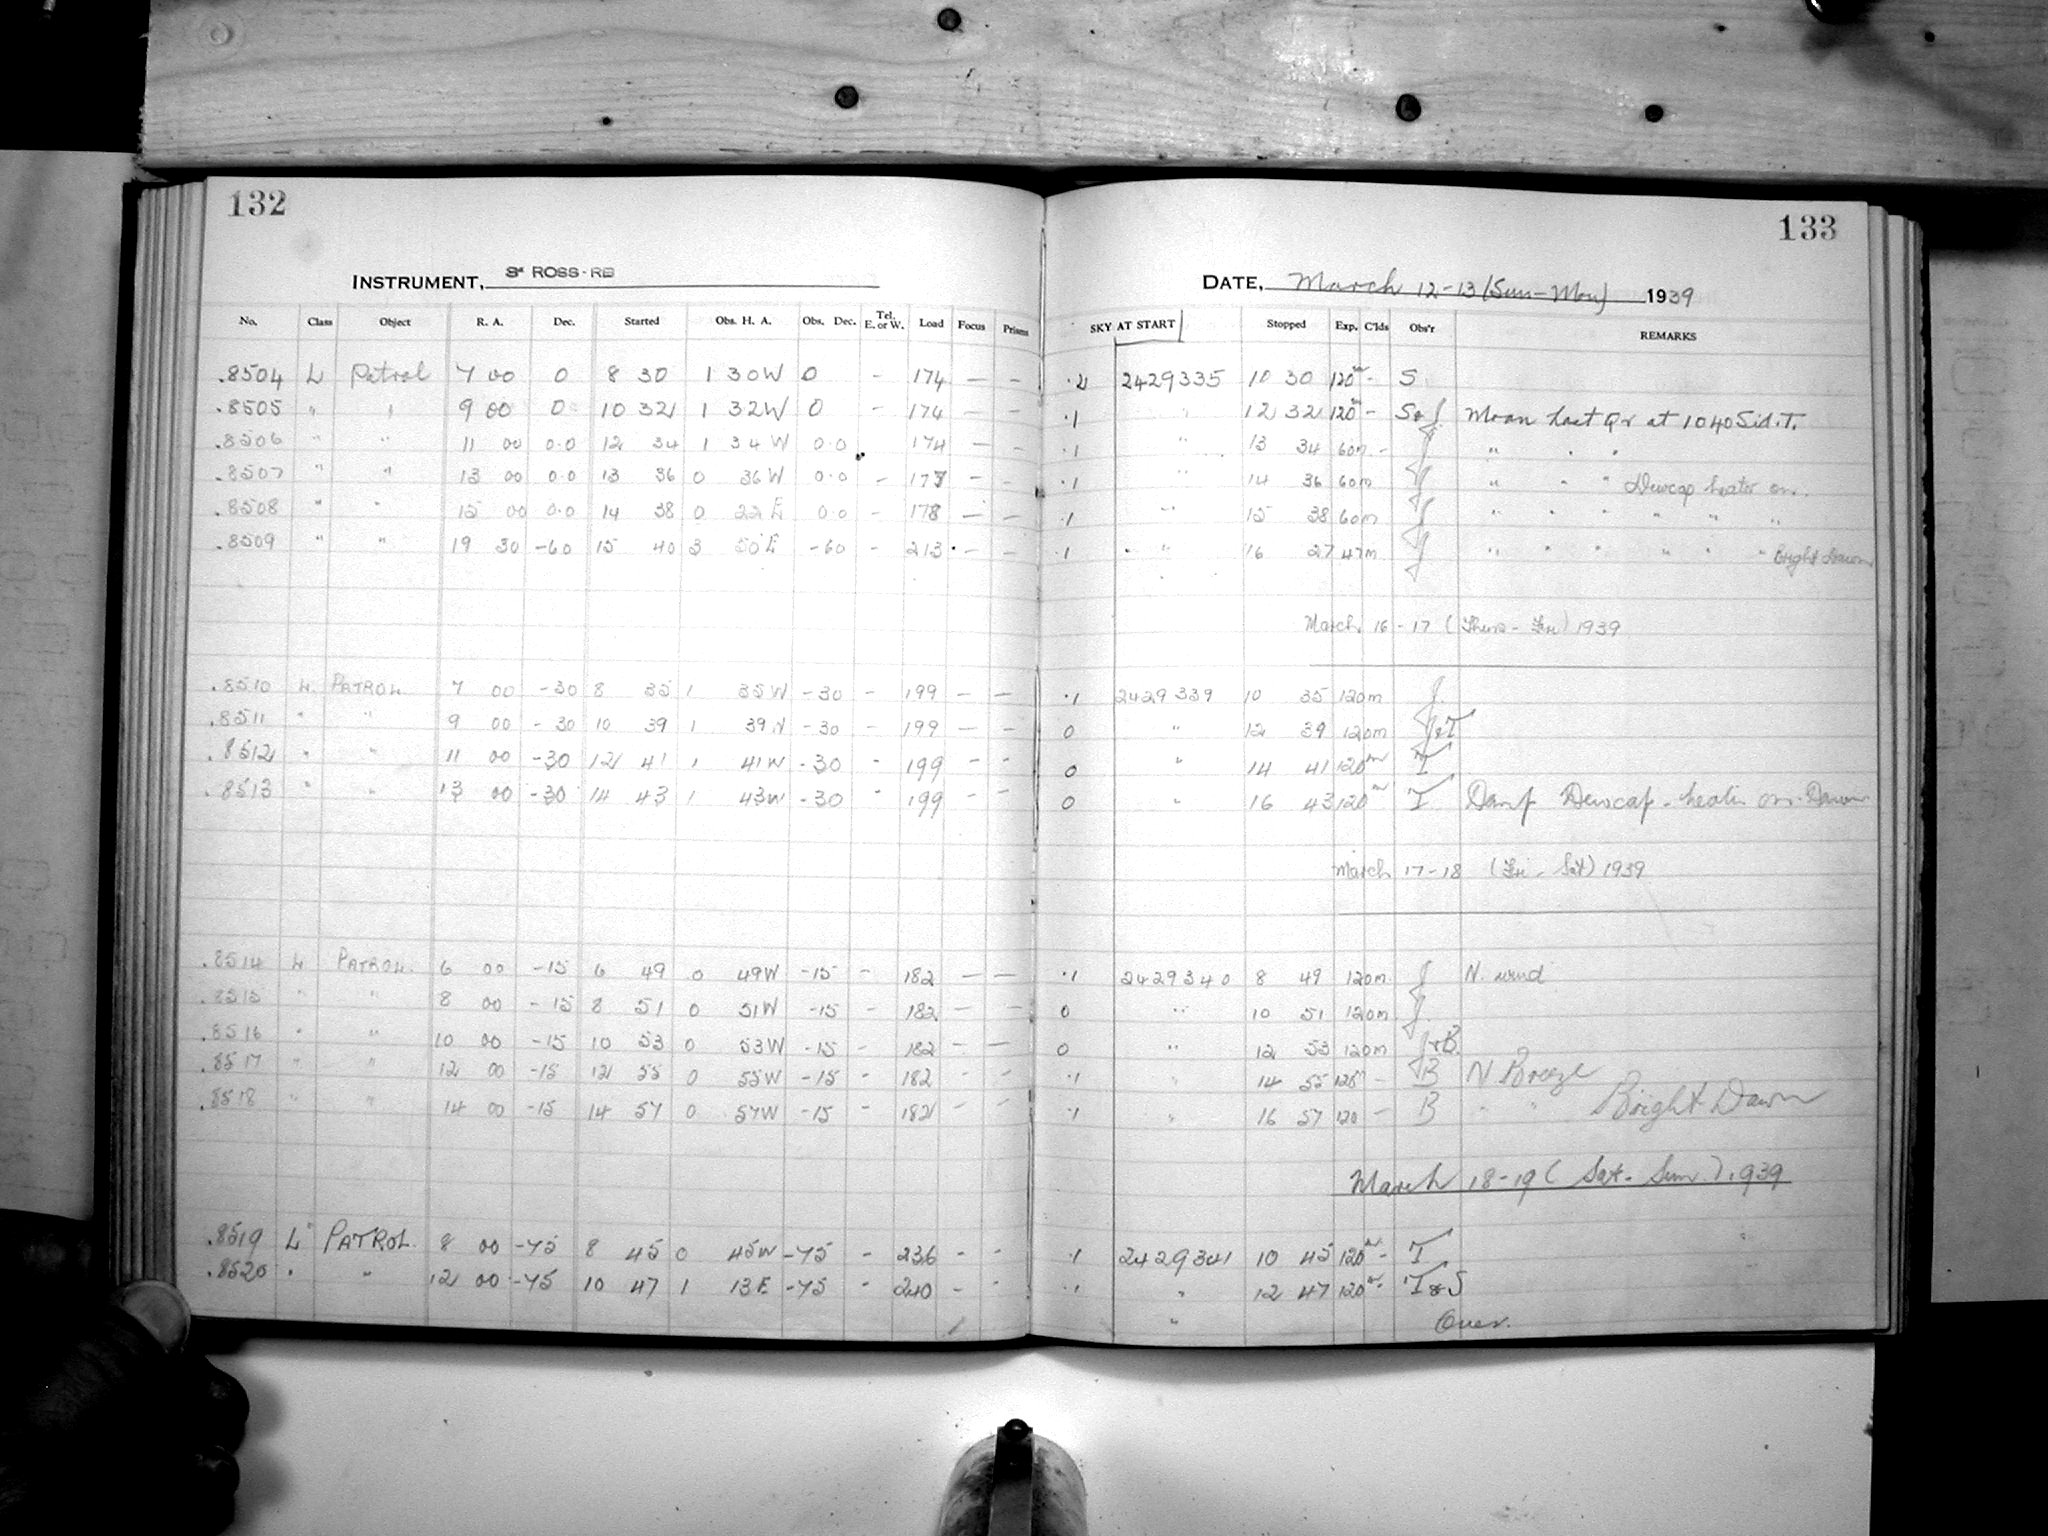 132
133
INSTRUMENT, 3" ROSS-RB
DATE, March 12-13 (Sun-Mon) 1939
No. Class Object R. A. Dec. Started Obs. H. A. Obs. Dec. Tel. E. or W. Load Focus Prisms SKY AT START Stopped Exp. C'lds Obs'r REMARKS
.8504 L Patrol 7 00 0 8 30 1 30W 0 - 174 - - .2 2429335 10 30 120m - S
.8505 " " 9 00 0 10 32 1 32W 0 - 174 - - .1 " 12 32 120m - S&J Moon Last Qr at 1040 Sid. T.
.8506 " " 11 00 0.0 12 34 1 34W 0.0 174 - - .1 " 13 34 60m - J " " "
.8507 " " 13 00 0.0 13 36 0 36W 0.0 - 177 - - .1 " 14 36 60m J " " " Dewcap heater on.
.8508 " " 15 00 0.0 14 38 0 22E 0.0 - 178 - - .1 " 15 38 60m J " " " " " "
.8509 " " 19 30 -60 15 40 3 50E -60 - 213 - - .1 " 16 27 47m J " " " " " " Bright Dawn
March 16-17 (Thurs-Fri) 1939
.8510 L PATROL 7 00 -30 8 35 1 35W -30 - 199 - - .1 2429339 10 35 120m J
.8511 " " 9 00 -30 10 39 1 39W -30 - 199 - - 0 " 12 39 120m J&T
.8512 " " 11 00 -30 12 41 1 41W -30 " 199 - - 0 " 14 41 120m T
.8513 " " 13 00 -30 14 43 1 43W -30 " 199 - - 0 " 16 43 120m T Damp Dewcap-heater on. Dawn
March 17-18 (Fri-Sat) 1939
.8514 L PATROL. 6 00 -15 6 49 0 49W -15 - 182 - - .1 2429340 8 49 120m J N. wind
.8515 " " 8 00 -15 8 51 0 51W -15 - 182 - - 0 " 10 51 120m J.
.8516 " " 10 00 -15 10 53 0 53W -15 - 182 - - 0 " 12 53 120m J+B.
.8517 " " 12 00 -15 12 55 0 55W -15 - 182 - - .1 " 14 55 120m - B N Breeze
.8518 " " 14 00 -15 14 57 0 57W -15 - 182 - - .1 " 16 57 120 - B " " Bright Dawn
March 18-19 (Sat-Sun) 1939
.8519 L PATROL. 8 00 -75 8 45 0 45W -75 - 236 - - .1 2429341 10 45 120m - T
.8520 " " 12 00 -75 10 47 1 13E -75 " 240 - - .1 " 12 47 120m - T&S
" Over.